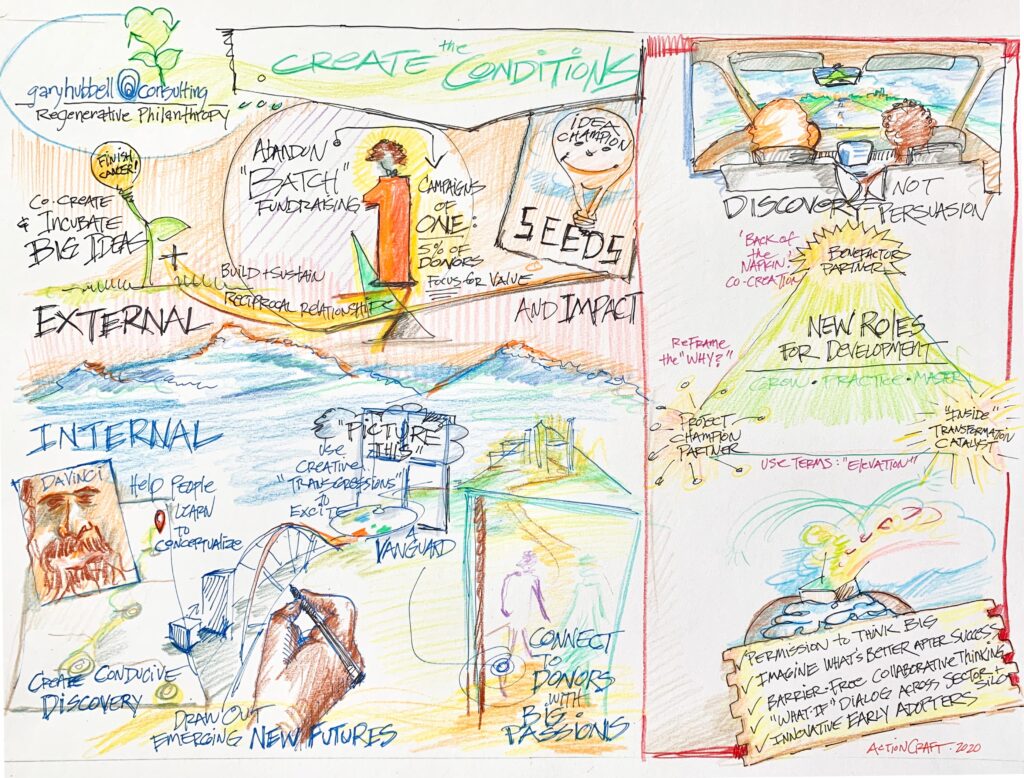 garyhubbell@consulting
Regenerative Philanthropy
CREATE the CONDITIONS
FINISH
CANCER!
CO-CREATE
& INCUBATE
BIG IDEAS
+
ABANDON
"BATCH"
FUNDRAISING
CAMPAIGNS
OF
ONE:
5% OF
DONORS
FOCUS FOR VALUE
IDEA
CHAMPION
SEEDS
BUILD + SUSTAIN
RECIPROCAL RELATIONSHIPS
EXTERNAL
AND IMPACT
INTERNAL
DAVINCI
HELP PEOPLE
LEARN
TO
CONCEPTUALIZE
"PICTURE
THIS"
USE
CREATIVE
"TRANSGRESSIONS"
TO
EXCITE
A
VANGUARD
CREATE CONDUCIVE
DISCOVERY
DRAW OUT
EMERGING NEW FUTURES
CONNECT
TO
DONORS
WITH
BIG
PASSIONS
DISCOVERY NOT
PERSUASION
"BACK OF
the
NAPKIN"
CO-CREATION
BENEFACTOR
PARTNER
REFRAME
the "WHY?"
NEW ROLES
FOR DEVELOPMENT
GROW • PRACTICE • MASTER
PROJECT
CHAMPION
PARTNER
"INSIDE"
TRANSFORMATION
CATALYST
USE TERMS: "ELEVATION"
✓ PERMISSION TO THINK BIG
✓ IMAGINE WHAT'S BETTER AFTER SUCCESS
✓ BARRIER-FREE COLLABORATIVE THINKING
✓ "WHAT-IF" DIALOG ACROSS SECTOR + SILO
✓ INNOVATIVE EARLY ADOPTERS
ACTIONCRAFT • 2020